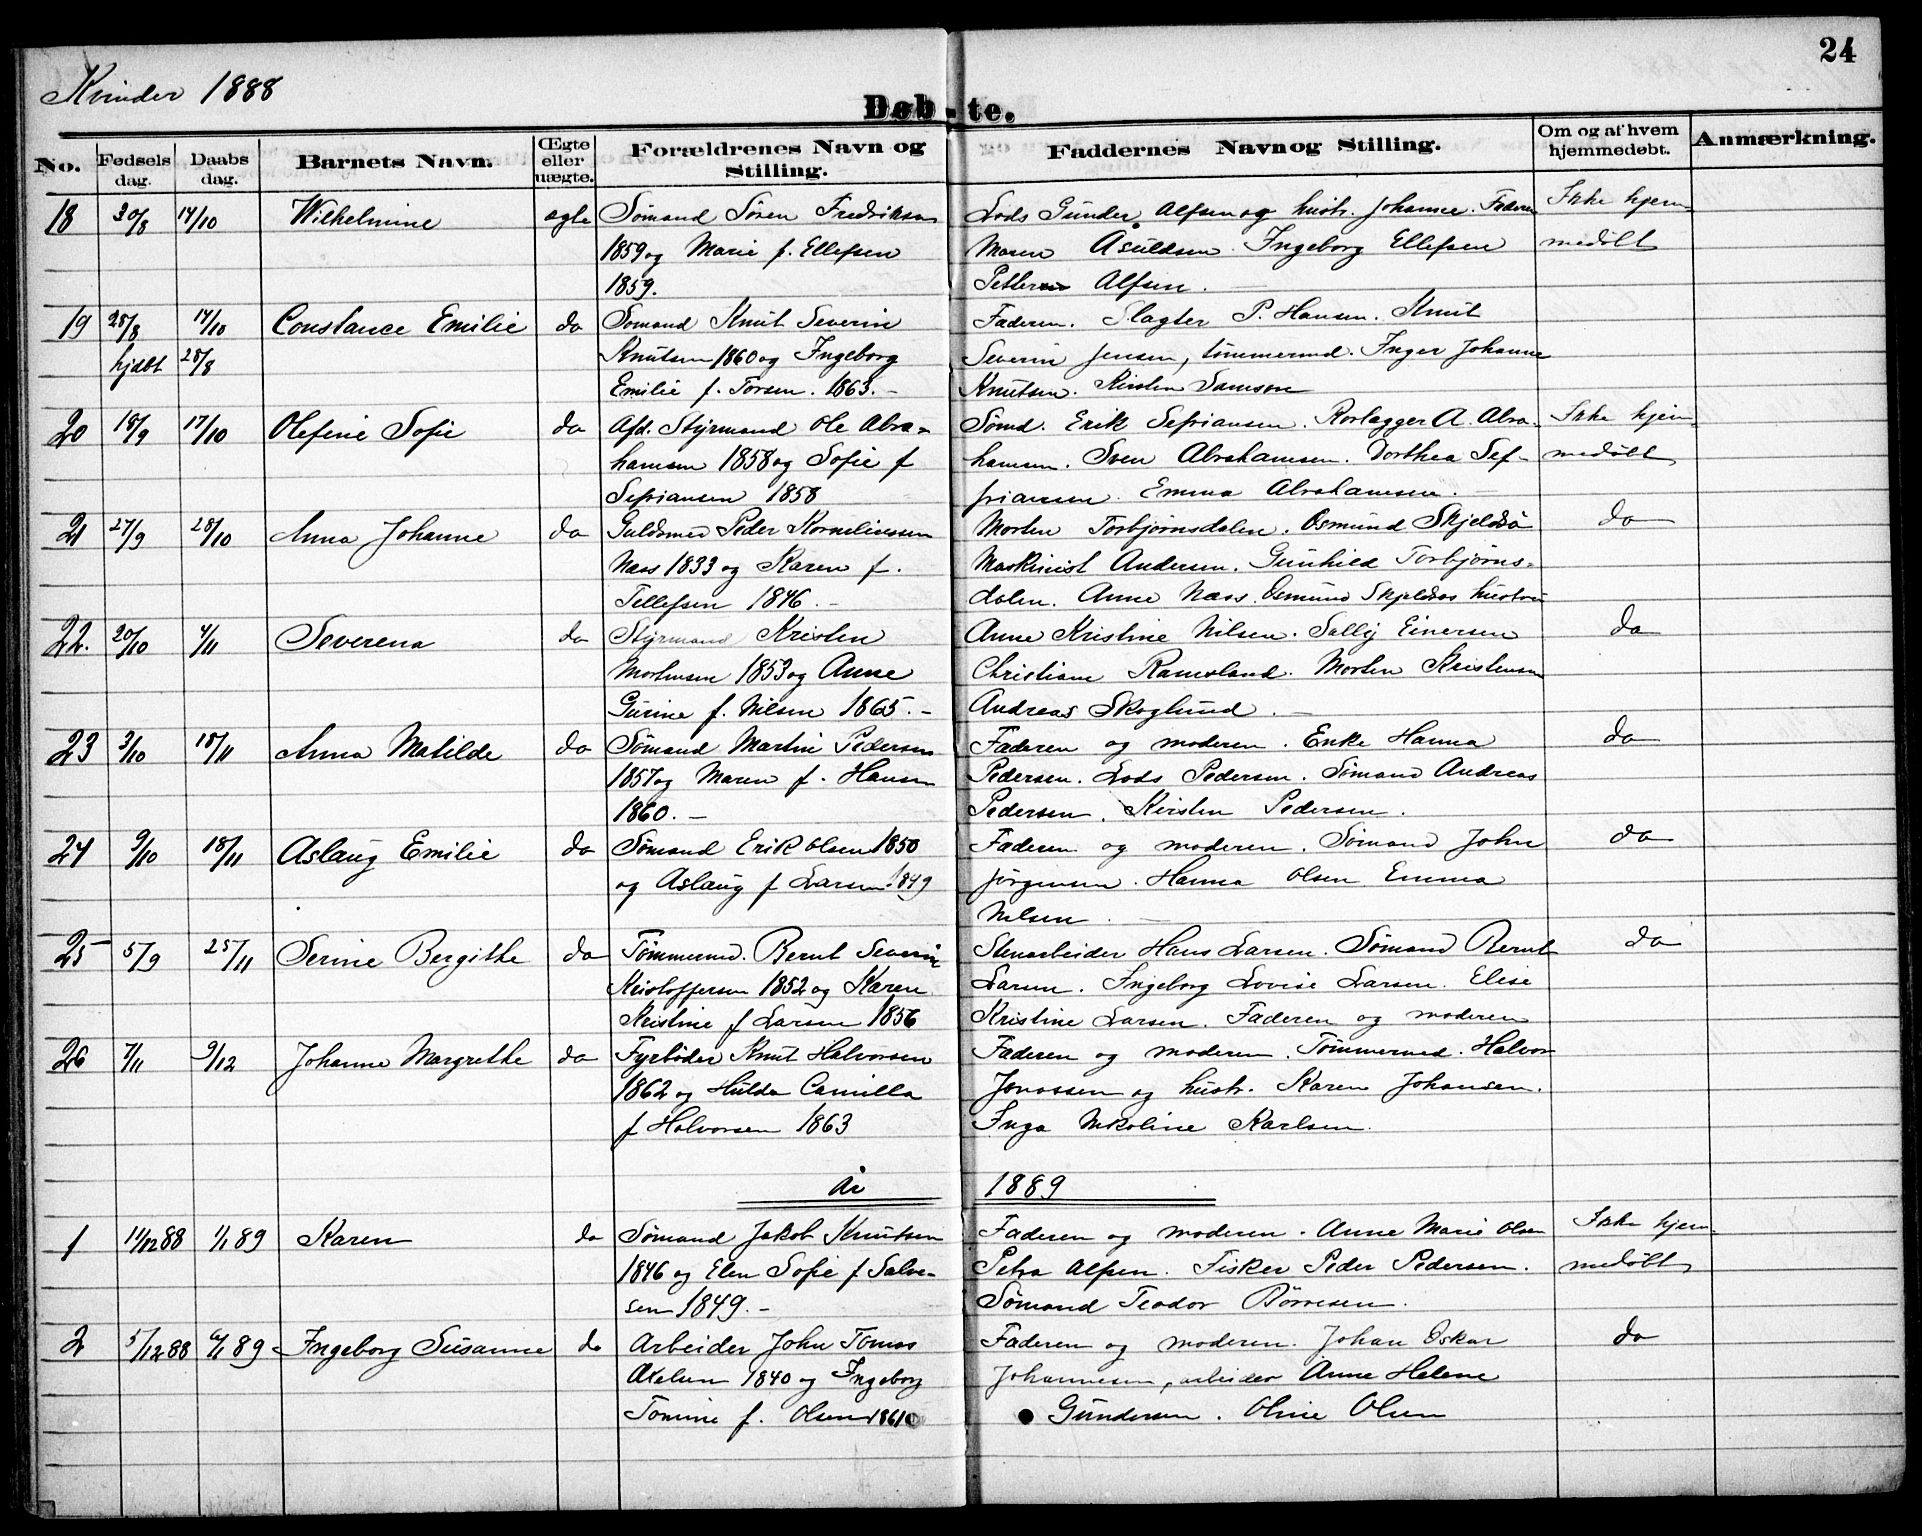 24
Kvinder 1888
Døb-te.
No. Fødsels dag. Daabs dag. Barnets Navn. Œgte eller uægte. Forældrenes Navn og Stilling. Faddernes Navn og Stilling. Om og af hvem hjemmedøbt. Anmærkning.
18 30/8 14/10 Wilhelmine ægte Sømand Søren Fredriksen Lods Gunder Alfsen og hustr. Johanne. Faderen Ikke hjem-
1859 og Marie f. Ellefsen Maren Åsuldsen. Ingeborg Ellefsen medøbt
1859. Petter Alfsen.
19 28/8 14/10 Constance Emilie do Sømand Knut Severin Faderen. Slagter P. Hansen. Knut
hjdbt 28/8 Knutsen 1860 og Ingeborg Severin Jensen, tømmermd. Inger Johanne
Emilie f. Torsen. 1863.- Knutsen. Kirsten Samsom
20 18/9 17/10 Olefine Sofie do Afd. Styrmand Ole Abra- Sømd. Erik Sefriansen. Rorlægger A. Abra- Ikke hjem-
hamsen 1858 og Sofie f hamsen. Sven Abrahamsen. Dorthea Sef- medøbt
Sefriansen 1858 friansen. Emma Abrahamsen.-
21 27/9 28/10 Anna Johanne do Guldsmed Peder Korneliussen Morten Torbjørnsdalen. Osmund Skjeldsø do
Næss 1833 og Karen f. Maskinist Andersen. Gunhild Torbjørns-
Tellefsen 1846.- dalen. Anne Næss. Osmund Skjeldsøs hustru
22. 20/10 4/11 Severena do Styrmand Kristen Anne Kristine Nilsen. Sally Einersen do
Mortensen 1853 og Anne Christiane Ramsland. Morten Kristensen
Gurine f. Nilsen 1865.- Andreas Skoglund.-
23 3/10 18/11 Anna Matilde do Sømand Martin Pedersen Faderen og moderen. Enke Hanna do
1857 og Maren f. Hansen Pedersen. Lods Pedersen. Sømand Andreas
1860.- Pedersen. Kirsten Pedersen.
24 9/10 18/11 Aslaug Emilie do Sømand Erik Olsen 1850 Faderen og moderen. Sømand John do
og Aslaug f Larsen. 1849 Jørgensen. Hanna Olsen Emma
Nilsen.-
25 5/9 25/11 Serine Bergithe do Tømmermd. Bernt Severin Stenarbeider Hans Larsen. Sømand Bernt do
Kristoffersen 1852 og Karen Larsen. Ingeborg Lovise Larsen. Elise
Kristine f Larsen 1856 Kristine Larsen. Faderen og moderen
26 7/11 9/12 Johanne Margrethe do Fyrbøder Knut Halvorsen Faderen og moderen. Tømmermd. Halvor
1862 og Hulda Camilla Jonassen og hustr. Karen Johansen.
f Halvorsen 1863 Inga Nikoline Karlsen.
År 1889
1 11/12 88 1/1 89 Karen do Sømand Jakob Knutsen Faderen og moderen. Anne Marie Olsen Ikke hjem-
1846 og Elen Sofie f Salve- Petra Alfsen. Fisker Peder Pedersen. medøbt
sen 1849.- Sømand Teodor Børresen.
2 5/12 88 6/1 89 Ingeborg Susanne do Arbeider John Tomas Faderen og moderen. Johan Oskar do
Axelsen 1840 og Ingeborg Johannesen, arbeider Anne Helene
Tomine f. Olsen 1861 Gundersen. Oline Olsen